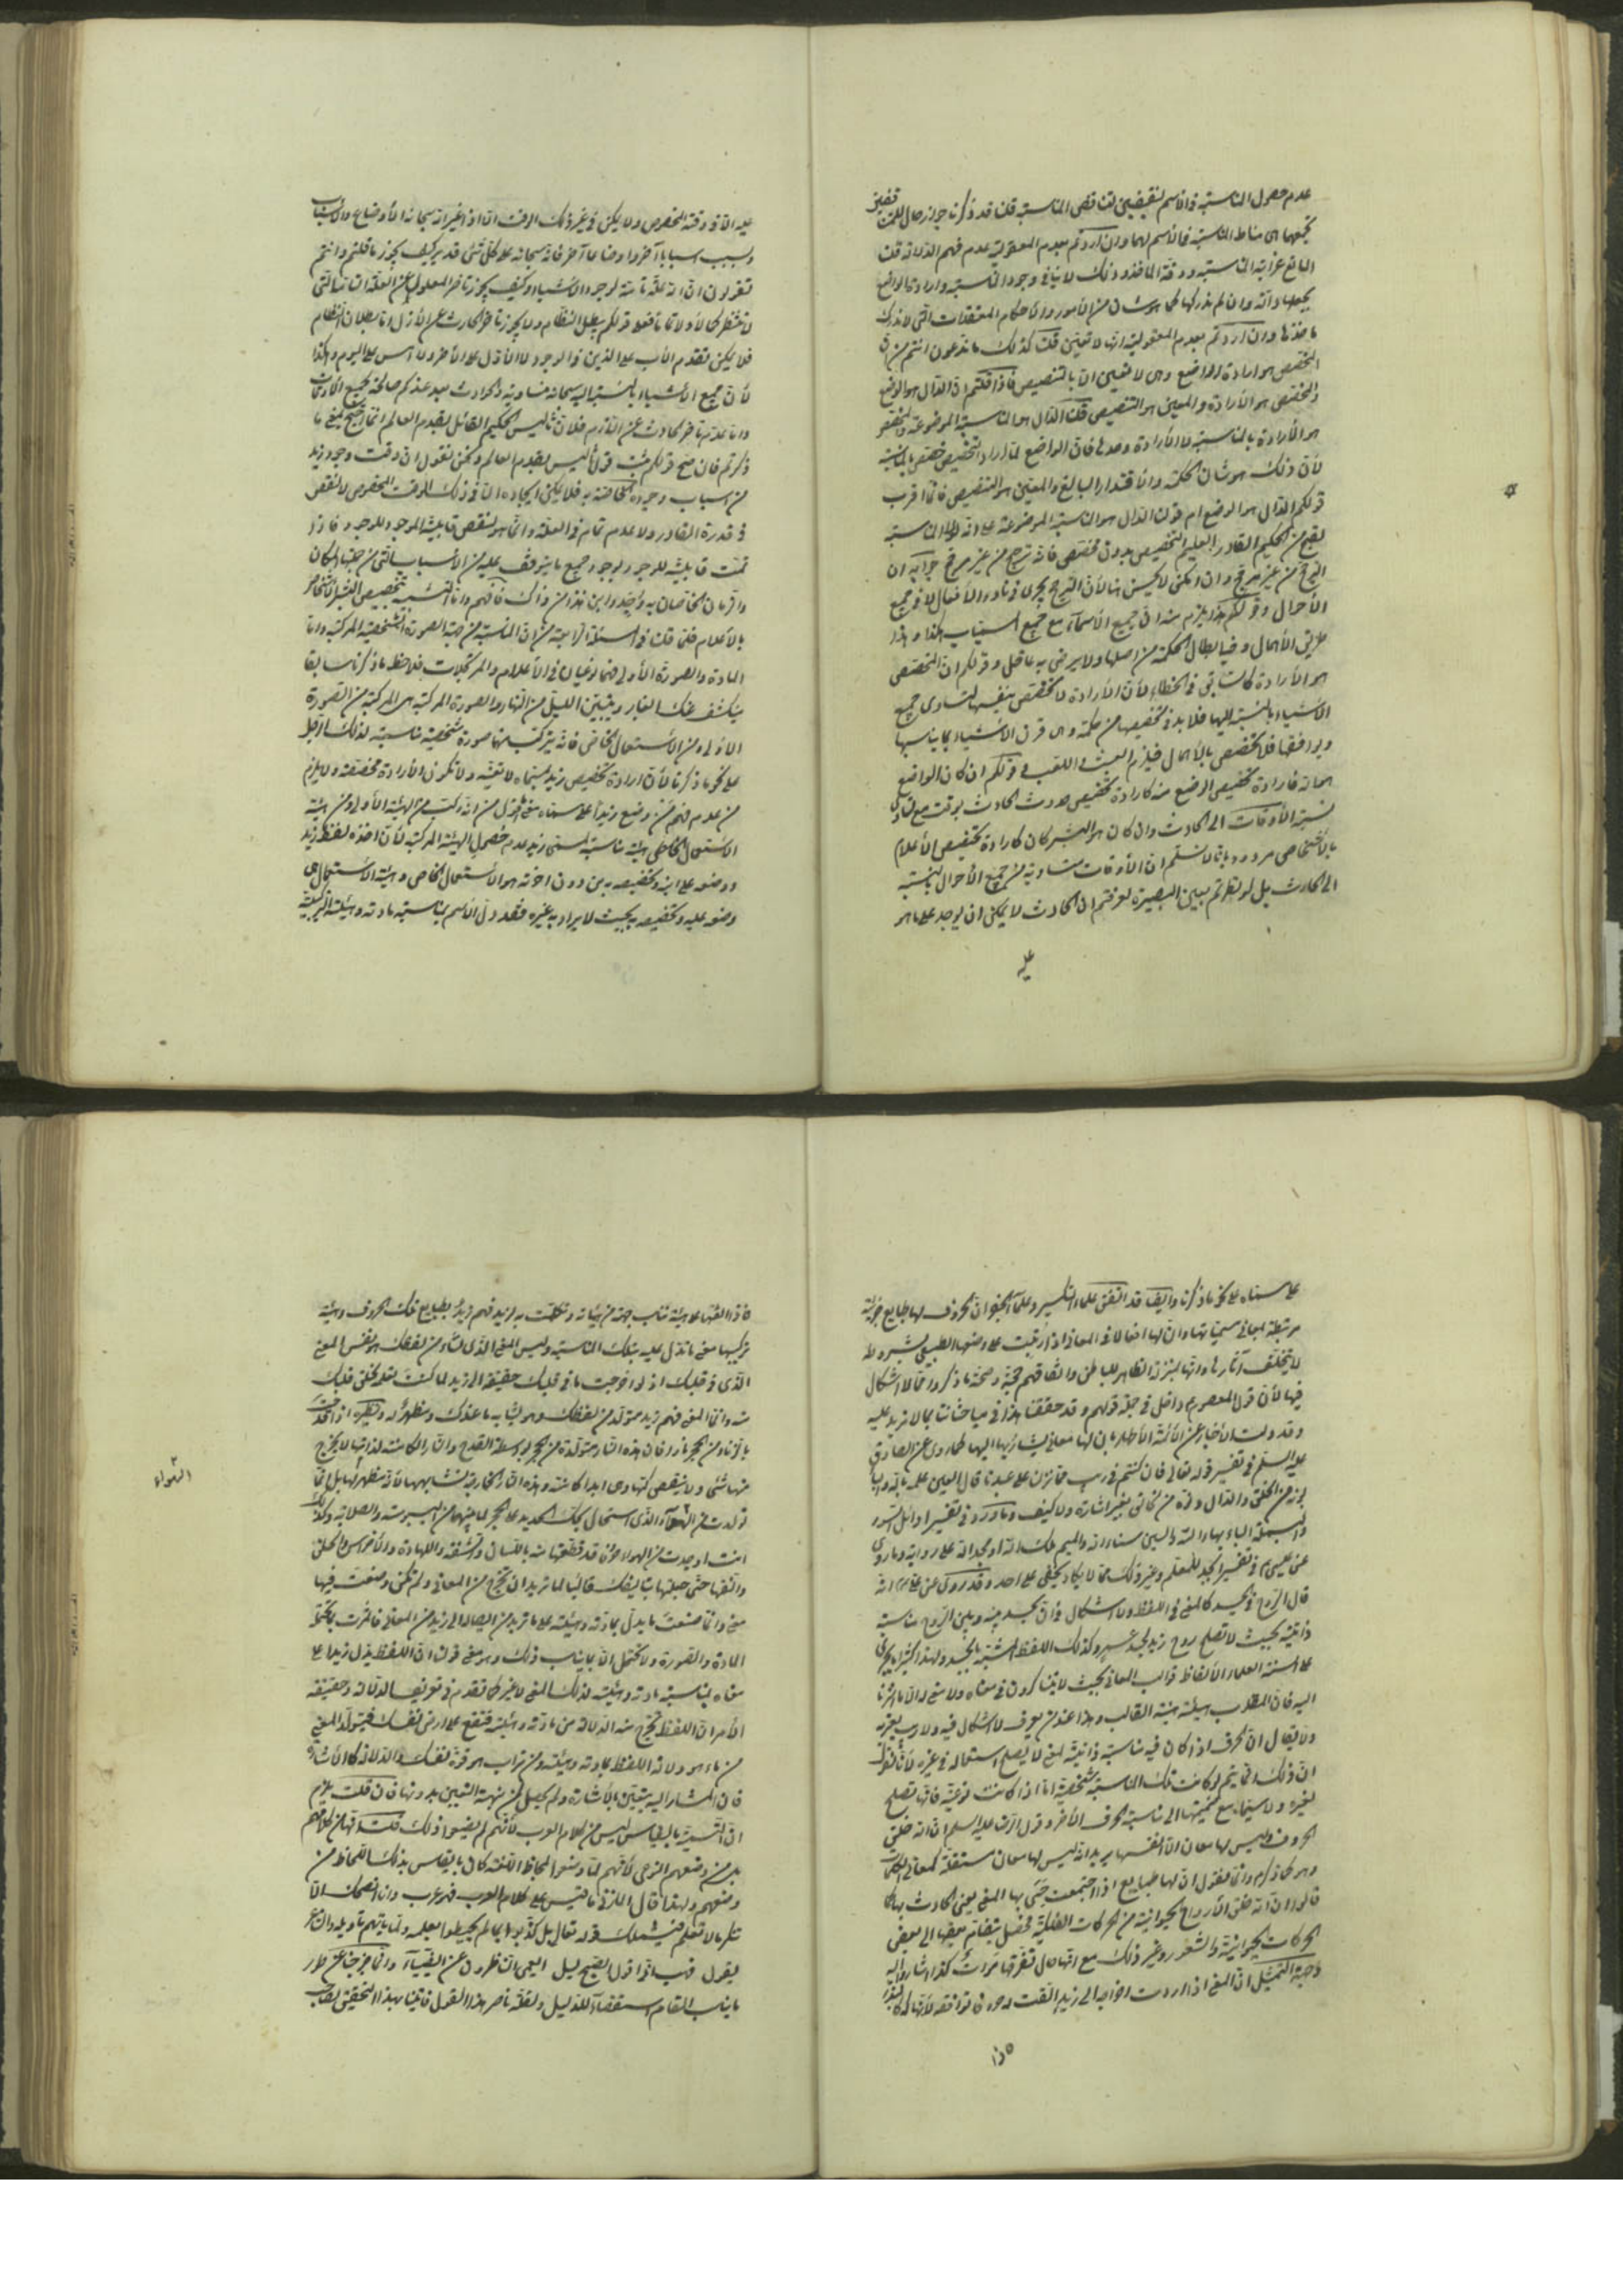 عدم حصول المناسبة في الاسم لنقيضين لتناقض المناسبة قلنا قد ذكرنا جواز حال للنقيضين
تجمعهما هى مناط المناسبة في الاسم لهما وان اردتم بعدم المعقولية عدم فهم الدلالة قلت
المانع غرابة المناسبة ودقة المأخذ وذلك لا ينافى وجود المناسبة وارادة الواضع
يجعلها دالة وان لم ندركها كما هو شأن من الأمور والأحكام المعتقدات التى لا ندرك
مأخذها وان اردتم بعدم المعقولية انها لا تعين قلت كذلك ما تدعون انتم من ان
المخصص هو ارادة الواضع وهى لا تعين الا بالتخصيص فاذا قلتم ان الدال هو الوضع
والمخصص هو الأرادة والمعين هو التخصيص قلنا الدال هو المناسبة الموضوعة والمخصص
هو الأرادة بالمناسبة لا الأرادة وحدها فان الواضع لما اراد التخصيص خصص بالمناسبة
لأن ذلك هو شأن الحكمة والأقتدار البالغ والمعين هو التخصيص فأيما اقرب
قولكم الدال هو الوضع ام قولنا الدال هو المناسبة الموضوعة على انه لولا المناسبة
لقبح من الحكيم القادر العليم التخصيص بدون مخصص فانه ترجيح من غير مرجح
الترجيح من غير مرجح وان امكن لا يحسن
الأحوال وقولكم هذا يلزم منه ان جميع الأسماء مع جميع المسميات هكذا وهذا
طريق الأهمال وفيه ابطال الحكمة من اصلها ولا يرضى به عاقل وقولكم ان المخصص
هو الأرادة كالسابق في الخطاء لأن الأرادة لا تخصص بنفسها لتساوى جميع
الأشياء بالنسبة اليها فلا بد في تخصيصها من حكمة وهى قرن الأشياء بما يناسبها
ويوافقها فلا تخصص بالأهمال فيلزم العبث واللعب وقولكم ان كان الواضع
هو الله فارادة تخصيص الوضع منه كارادة تخصيص حدوث الحادث بوقت مع تساوى
نسبة الأوقات الى الحادث وان كان هو البشر كان كارادة تخصيص الأعلام
بالأشخاص مردود بانا لا نسلم ان الأوقات متساوية من جميع الأحوال بالنسبة
الى الحادث بل لو نظرتم بعين البصيرة لعرفتم ان الحادث لا يمكن ان يوجد على ما هو
عليه
عليه الا في وقته المخصوص ولا يمكن في غير ذلك الوقت الا اذا غير الله سبحانه الأوضاع والأسباب
وسبب اسبابا آخر واوضاعا آخر فانه سبحانه على كل شئ قدير كيف يجوز ما قلتم وانتم
تقولون ان الله علة تامة لوجود الأشياء وكيف يجوز تأخر المعلول عن العلة
فلا يمكن تقدم الأب على الذين في الوجود الا الأول على الأخر ولا امس على اليوم وهكذا
لأن جميع الأشياء بالنسبة اليه سبحانه متساوية والحوادث بعد عندكم صالحة لجميع الأوقات
واما عدم تأخر الحادث عن اللازم فلان أليس الحكيم القائل بقدم العالم
ذكرتم فان صح قولكم ثبت قول أليس بقدم العالم ونحن نقول ان وقت وجود زيد
من اسباب وجوده الخاصة به فلا يمكن ايجاده الا في ذلك الوقت المخصوص لا لنقص
في قدرة القادر ولا عدم تمام في العلة وانما هو لنقص قابلية الموجود للوجود فاذا
تمت قابليته للوجود لوجود جميع ما يتوقف عليه من الأسباب التى من جملتها المكان
والزمان الخاصان به وجد واين هذا من ذاك فافهم
بالأعلام فقد قلنا في المسئلة الرابعة من ان المناسبة من جهة الصورة الشخصية المركبة واما
المادة والصورة الأولى فهما نوعيان في الأعلام والمرتجلات فلاحظ ما ذكرنا سابقا
ينكشف عنك الغبار ويتبين الليل من النهار والصورة المركبة هى المركبة من الصورة
الأولى ومن الأستعمال الخاص فانه يتركب منهما صورة شخصية مناسبة لذلك الرجل
على نحو ما ذكرنا لأن ارادة تخصيص زيد بمسماه لا تعينه ولا تكون الأرادة مخصصة ولا يلزم
من عدم فهم من وضع زيدا على مسماه
الأستعمال الخاص هيئة مناسبة لمسمى زيد عدم حصول الهيئة المركبة لأن اخذه لفظ زيد
ووضعه على ابنه وتخصيصه به من دون اخذته هو الأستعمال الخاص وهيئة الأستعمال هى
وضعه عليه وتخصيصه به بحيث لا يراد به غيره فقد دل الأسم بمناسبة مادته وهيئته التركيبية
على مسماه على نحو ما ذكرنا وايضا قد اتفق علماء التكسير وعلماء الجفر ان الحروف لها طبايع
مرتبطة بمعانى مسمياتها وان لها افعالا في المعانى اذا رتبت على وضعها الطبيعى بشروطه
لا يتخلف آثارها وانها بمنزلة الظاهر للباطن واتفاقهم حجة وصحة ما ذكروا مما لا اشكال
فيها لأن قول المعصوم داخل في جملة قولهم وقد حققنا هذا في مباحثاتنا بما لا مزيد عليه
وقد دلت الأخبار عن الأئمة الأطهار بان لها معانى يشار بها اليها كما روى عن الصادق
عليه السلم في تفسير قوله تعالى فان كنتم في ريب مما نزلنا على عبدنا قال العين علمه بالله والباء
بونه من الخلق والدال دنوه من الخالق بغير اشارة ولا كيف وما ورد في تفسير اوائل السور
والبسملة الباء بهاء الله والسين سناء الله والميم ملك الله او مجد الله على رواية وما روى
عن عيسى في تفسير ابجد للمعلم وغير ذلك مما لا يكاد يخفى على احد وقد روى عن على انه
قال الروح في الجسد كالمعنى في اللفظ ولا اشكال في ان الجسد بينه وبين الروح مناسبة
ذاتية بحيث لا تصلح روح زيد لجسد عمرو وكذلك اللفظ المشبه بالجسد ولهذا كثيرا ما يجرى
على السنة العلماء الألفاظ قوالب المعانى بحيث لا يتناكرون في معناه ولا معنى له الا ما اشرنا
اليه فان المطلوب هيئته هيئة القالب وهذا عند من يعرف لا اشكال فيه ولا ريب يعتريه
ولا يقال ان الحرف اذا كان فيه مناسبة ذاتية لمعنى لا يصلح استعماله في غيره لأنا نقول
ان ذلك انما يتم لو كانت تلك المناسبة شخصية اما اذا كانت نوعية فانها تصلح
لغيره ولا سيما مع ضميمتها الى مناسبة الحرف الأخر وقول الرضا عليه السلم ان الله خلق
الحروف وليس لها معان الا انفسها يريد انه ليس لها معان مستقلة كمعانى الكلمات
وهو كما ذكره وانما نقول ان لها طبايع اذا اجتمعت جئى بها المعنى يعنى الحادث بها كما
قالوا ان الله خلق الأرواح الحيوانية من الحركات الفلكية فحصل بانضمام بعضها الى بعض
الحركات الحيوانية والشعور وغير ذلك مع انها حال تفرقها موات كذا اشاروا اليه
وجهة التمثيل ان المعنى اذا اردت اخراجه الى زيد الفت له حروفا توافقه
فاذا
فاذا الفتها على هيئة تناسب جهة من هيئاته وتكلمت به لزيد فهم زيد بطبايع تلك الحروف وهيئة
تركيبها معنى ما تدل عليه بتلك المناسبة وليس المعنى الذى نشاء من لفظك هو نفس المعنى
الذى في قلبك اذ لو اخرجت ما في قلبك حقيقة الى زيد لما كنت تعلم لخلو قلبك
منه وانما المعنى فهم زيد متولد من لفظك وهو مشابه ما عندك ومظهر له ونظيره اذا قدحت
بالزناد من الحجر نارا فان هذه النار متولدة من الحجر بواسطة القدح والنار الكامنة لذاتها لا يخرج
منها شئ ولا ينقص كمها وهى ابدا كامنة وهذه النار الخارجة تشابهها لأنها مظهر لها بل انما
تولدت من الهواء الذى استحال بحك الحديد على الحجر لما بينهما من اليبوسة والصلابة وكذلك
انت اوجدت من الهواء حروفا قد قطعتها منه باللسان والشفة واللهاة والأضراس والحلق
والفتها حتى جعلتها بتأليفك قالبا لما تريد ان تخرج من المعانى ولم تكن وضعت فيها
معنى وانما صنعت ما يدل بمادته وهيئته على ما تريد من ايصاله الى زيد من المعانى
المادة والصورة ولا تحتمل الا ما يناسب ذلك وهو معنى قولنا ان اللفظ يدل زيدا على
معناه بمناسبة مادته وهيئته لذلك المعنى لا غير كما تقدم في تعريف الدلالة وحقيقة
الأمر ان اللفظ تخرج منه الدلالة من مادته وهيئته فتقع على ارض نفسك فيتولد المعنى
من ماء هو دلالة اللفظ بمادته وهيئته ومن تراب هو قوة نفسك والدلالة كالأشارة
فان المشار اليه يتعين بالأشارة ولم يحصل من جهة التعيين بدونها فان قلت يلزم
ان التسمية بالقياس ليس من كلام العرب لأنهم لم يضعوا ذلك قلت انها من كلامهم
بل من وضعهم النوعى لأنهم لما وضعوا بلحاظ اللغة كان ما يقاس بذلك اللحاظ من
وضعهم ولهذا قال المازنى ما قيس على كلام العرب فهو عرب وانا انصحك الا
تنكر ما لا تعلم فيشملك قوله تعالى بل كذبوا بما لم يحيطوا بعلمه ولما يأتهم تأويله والشاعر
يقول فهب انى اقول الصبح ليل ايعمى الناظرون عن الضياء وانما خرجنا عن طور
ما يناسب المقام استقصاء للدليل ولقلة ناصر هذا القول فاتينا بهذا التحقيق
الهواء